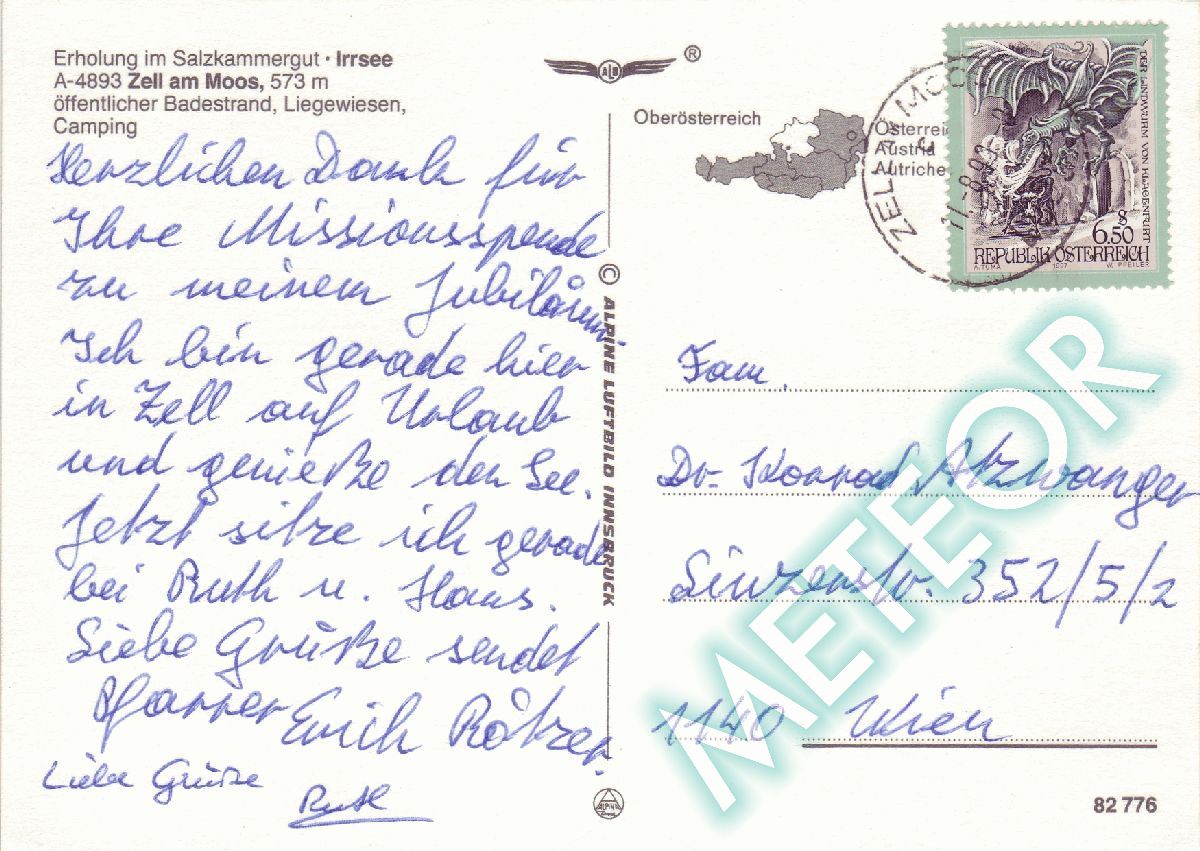 Erholung im Salzkammergut · Irrsee
A-4893 Zell am Moos, 573 m
öffentlicher Badestrand, Liegewiesen,
Camping
Herzlichen Dank für
Ihre Missionsspende
zu meinem Jubiläum.
Ich bin gerade hier
in Zell auf Urlaub
und genieße den See.
Jetzt sitze ich gerade
bei Ruth u. Hans.
Liebe Grüße sendet
Pfarrer Erich Rötzer.
Liebe Grüße
Ruth
© ALPINE LUFTBILD INNSBRUCK
ALPINE
ALB
®
Oberösterreich
Österrei
Austria
Autriche
ZELL A. MOOS
DER LINDWURM VON KLAGENFURT
S
6.50
REPUBLIK ÖSTERREICH
A. TUMA 1997 W. PFEILER
Fam.
Dr. Konrad Atzwanger
Linzerstr. 352/5/2
1140 Wien
METEOR
82 776